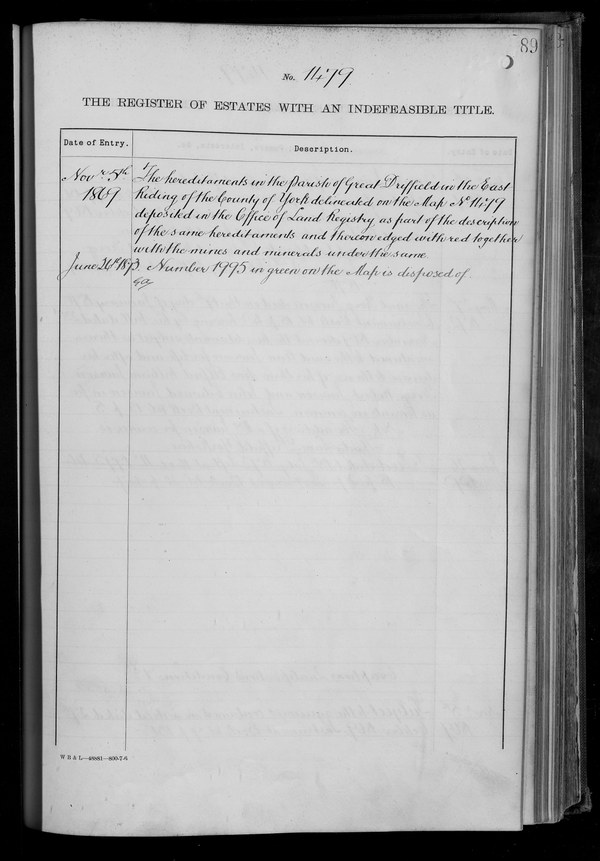 89
No. 1479
THE REGISTER OF ESTATES WITH AN INDEFEASIBLE TITLE.
Date of Entry. Description.
Novr. 5th The hereditaments in the Parish of Great Driffield in the East
1869 Riding of the County of York delineated on the Map No 1479
deposited in the Office of Land Registry as part of the description
of the same hereditaments and thereon edged with red together
with the mines and minerals under the same
June 26th 1893. Number 1995 in green on the Map is disposed of
W B & L—48881—800-7-6